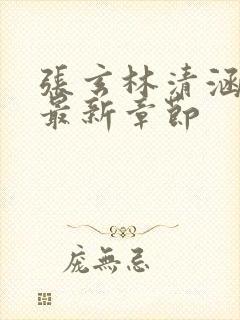 張玄林清涵
最新章節
庞無忌